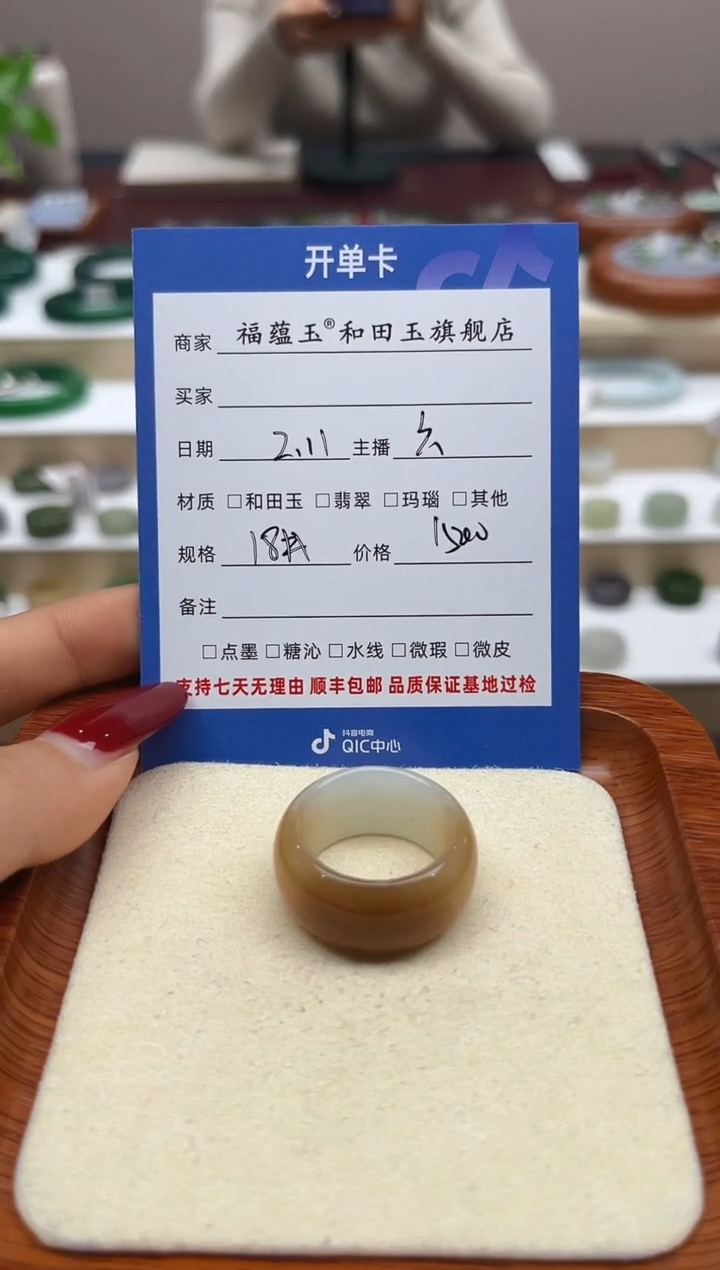 开单卡
商家 福蕴玉®和田玉旗舰店
买家
日期 2.11 主播
材质 □和田玉 □翡翠 □玛瑙 □其他
规格 18 价格
备注
□点墨 □糖沁 □水线 □微瑕 □微皮
支持七天无理由 顺丰包邮 品质保证基地过检
抖音电商
QIC中心